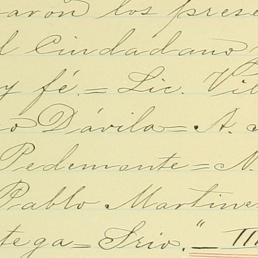 aron los prese
l Ciudadano
y fé.= Lic. Vil
o Dávila= A.
Pedemante= N.
Pablo Martine
tega= Srio."_ III